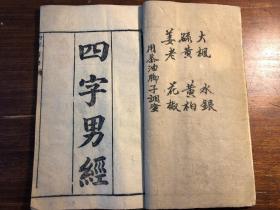 大楓 水銀
硫黃 黃柏
姜老 花椒
用茶油脚子調
四字男經